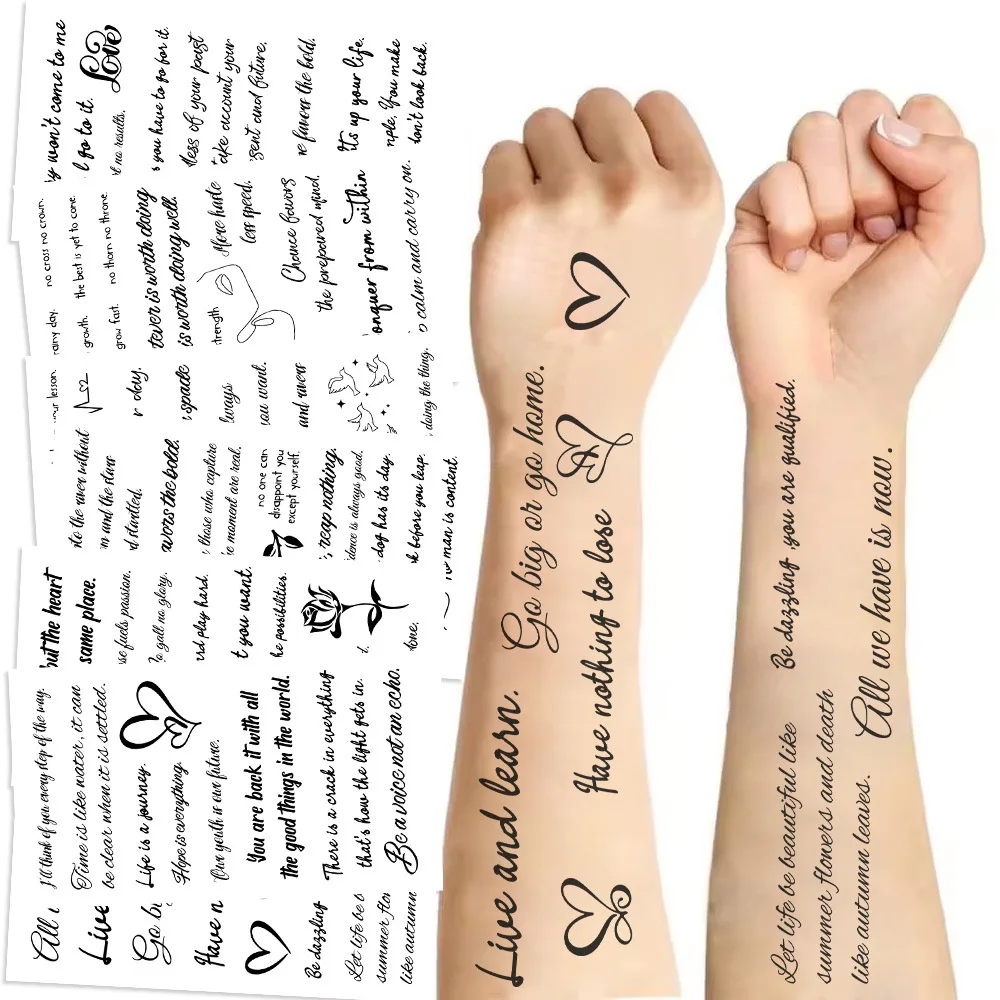 y won't come to me
l go to it.
Love
no results.
s you have to go for it.
less of your past
take account your
sent and future.
e favors the bold.
It's up your life.
mple. You make
don't look back.
rainy day. no cross no crown.
growth. the best is yet to come
grow fast. no thorn no throne
tever is worth doing
is worth doing well.
trength
More haste
less speed.
Chance favors
the prepared mind.
onquer from within
calm and carry on.
our lesson.
r day.
spade
lways
you want.
and waver
doing the thing.
to the river without
m and the slow
d startled.
avors the bold.
those who capture
e moment are real.
no one can
disappoint you
except yourself.
reap nothing.
idence is always good.
dog has its day.
k before you leap.
man is content.
but the heart
same place.
se fuels passion.
o gall no glory.
rd play hard.
t you want.
he possibilities.
done.
I'll think of you every step of the way.
Time is like water, it can
be clear when it is settled.
Life is a journey.
Hope is everything.
Our youth is our future.
You are back it with all
the good things in the world.
There is a crack in everything
that's how the light gets in.
Be a voice not an echo.
All
Live
Go bi
Have n
Be dazzling
Let life be b
summer flo
like autumn
Live and learn.
Go big or go home.
Have nothing to lose
Be dazzling ,you are qualified.
All we have is now.
Let life be beautiful like
summer flowers and death
like autumn leaves.